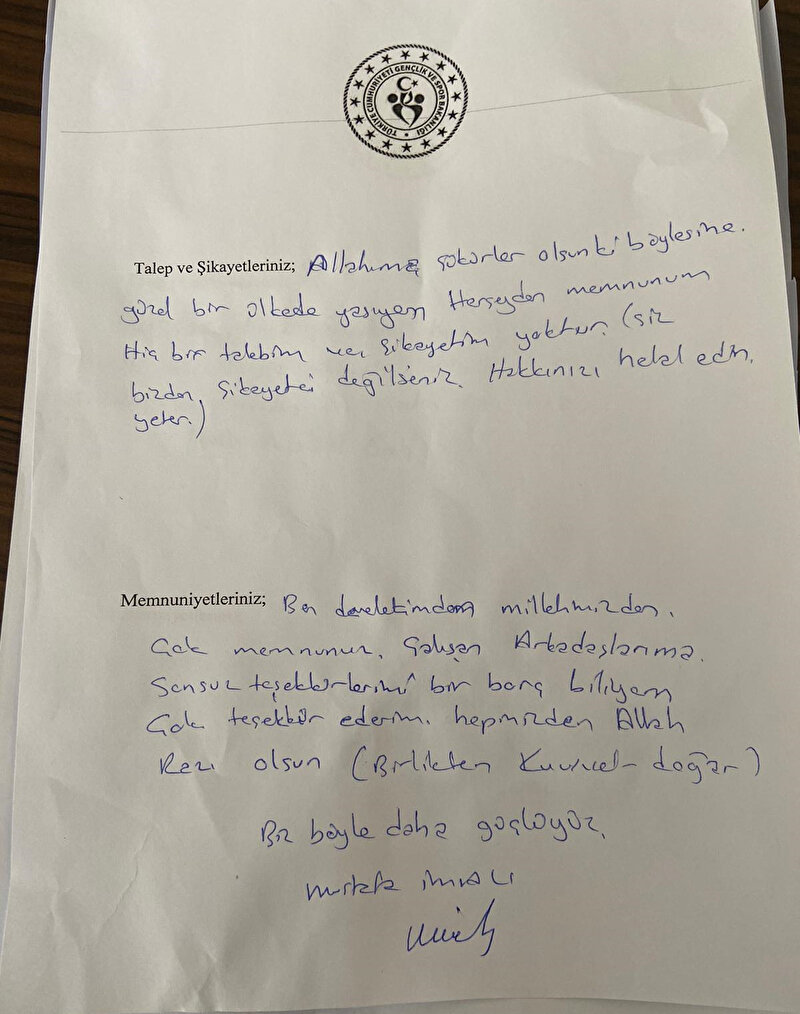 TÜRKİYE CUMHURİYETİ GENÇLİK VE SPOR BAKANLIĞI
Talep ve Şikayetleriniz; Allahıma şükürler olsun ki böylesine.
güzel bir ülkede yaşıyem Herşeyden memnunum
Hiç bir talebim ve şikayetim yoktur. (siz
bizden şikayetci değilseniz. Hakkınızı helal edin.
yeter.)
Memnuniyetleriniz; Ben devletimden milletimizden.
Çok memnunun. Çalışan Arkadaşlarıma.
Sonsuz teşekkürlerimi bir borç biliyem
Çok teşekkür ederim. hepinizden Allah
Razı olsun (Birlikten Kuvvet doğar)
Biz böyle daha güçlüyüz.
Mustafa